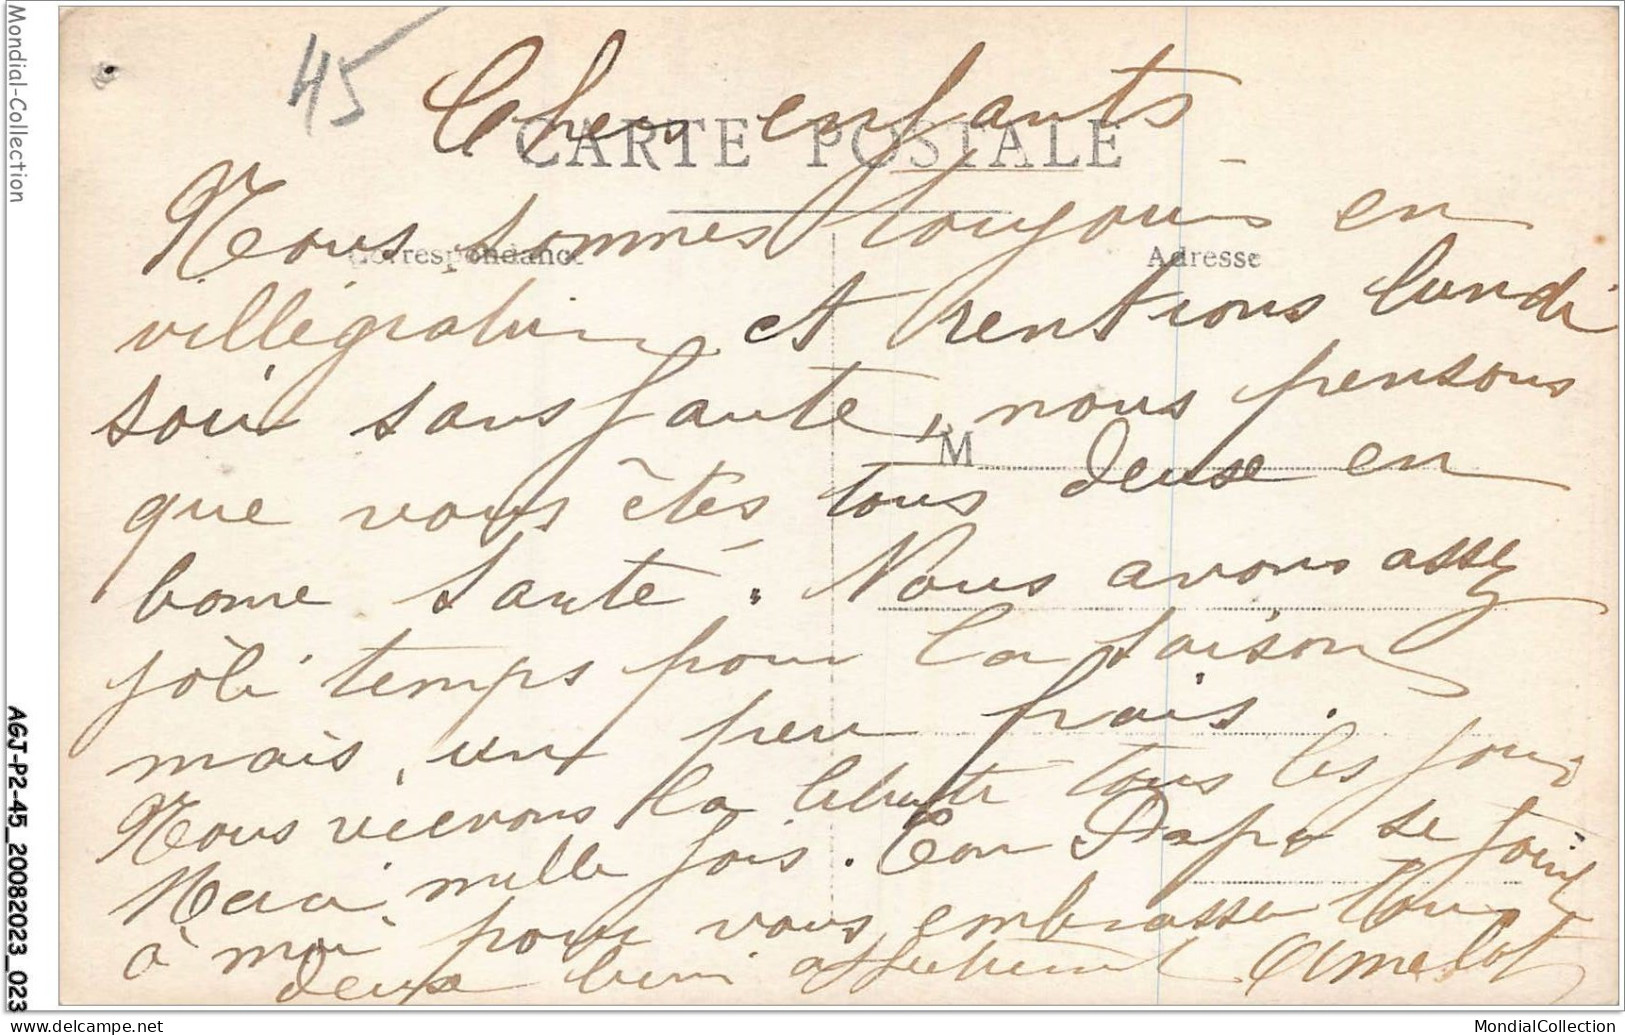 Mondial-Collection
45
Chers enfants
CARTE POSTALE
Nous sommes toujours en
Correspondance
Adresse
villégiature et rentrons lundi
soir sans faute, nous pensons
M
que vous êtes tous deuse en
bonne Santé. Nous avons assez
joli temps pour la saison
mais, un peu frais.
Nous recevons la tous les jours
Merci mille fois. Ton Papa se joint
à moi pour vous embrasser tous
deux bien affectueusement Amelot
AGJ-P2-45_20082023_023
www.delcampe.net
MondialCollection